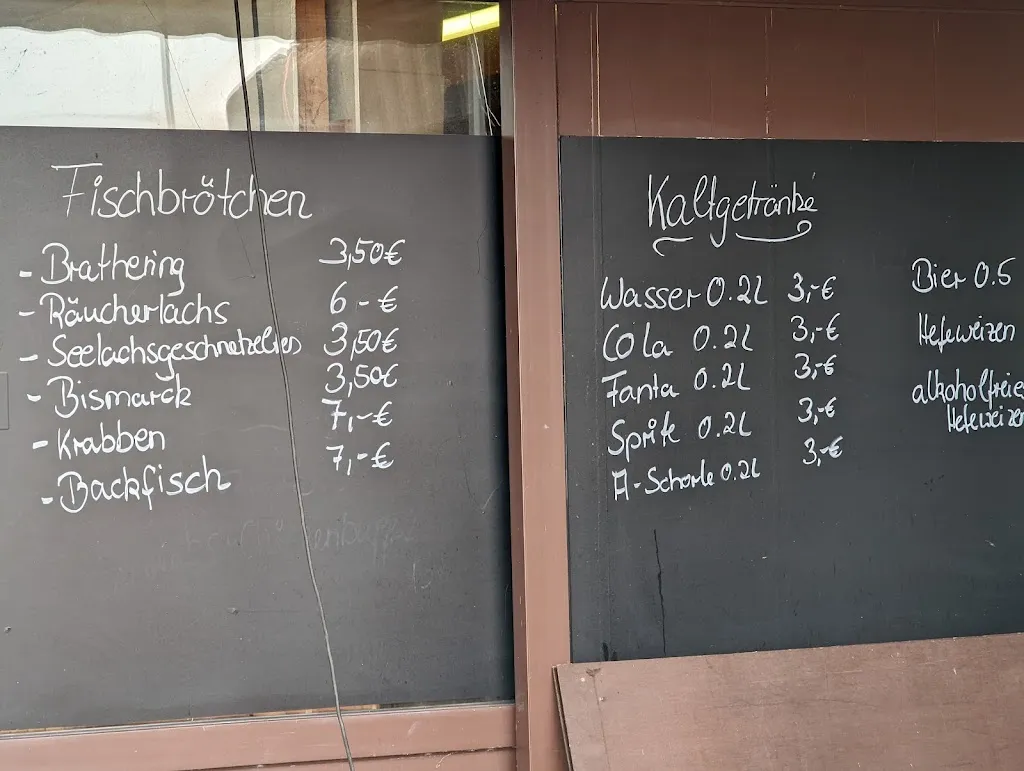 Fischbrötchen
- Brathering 3,50€
- Räucherlachs 6 - €
- Seelachsgeschnetzeltes 3,50€
- Bismarck 3,50€
- Krabben 7,-€
- Backfisch 7,-€
Kaltgetränke
Wasser 0.2L 3,-€
Cola 0.2L 3,-€
Fanta 0.2L 3,-€
Sprite 0.2L 3,-€
A-Schorle 0.2L 3,-€
Bier 0.5
Hefeweizen
alkoholfreies
Hefeweizen